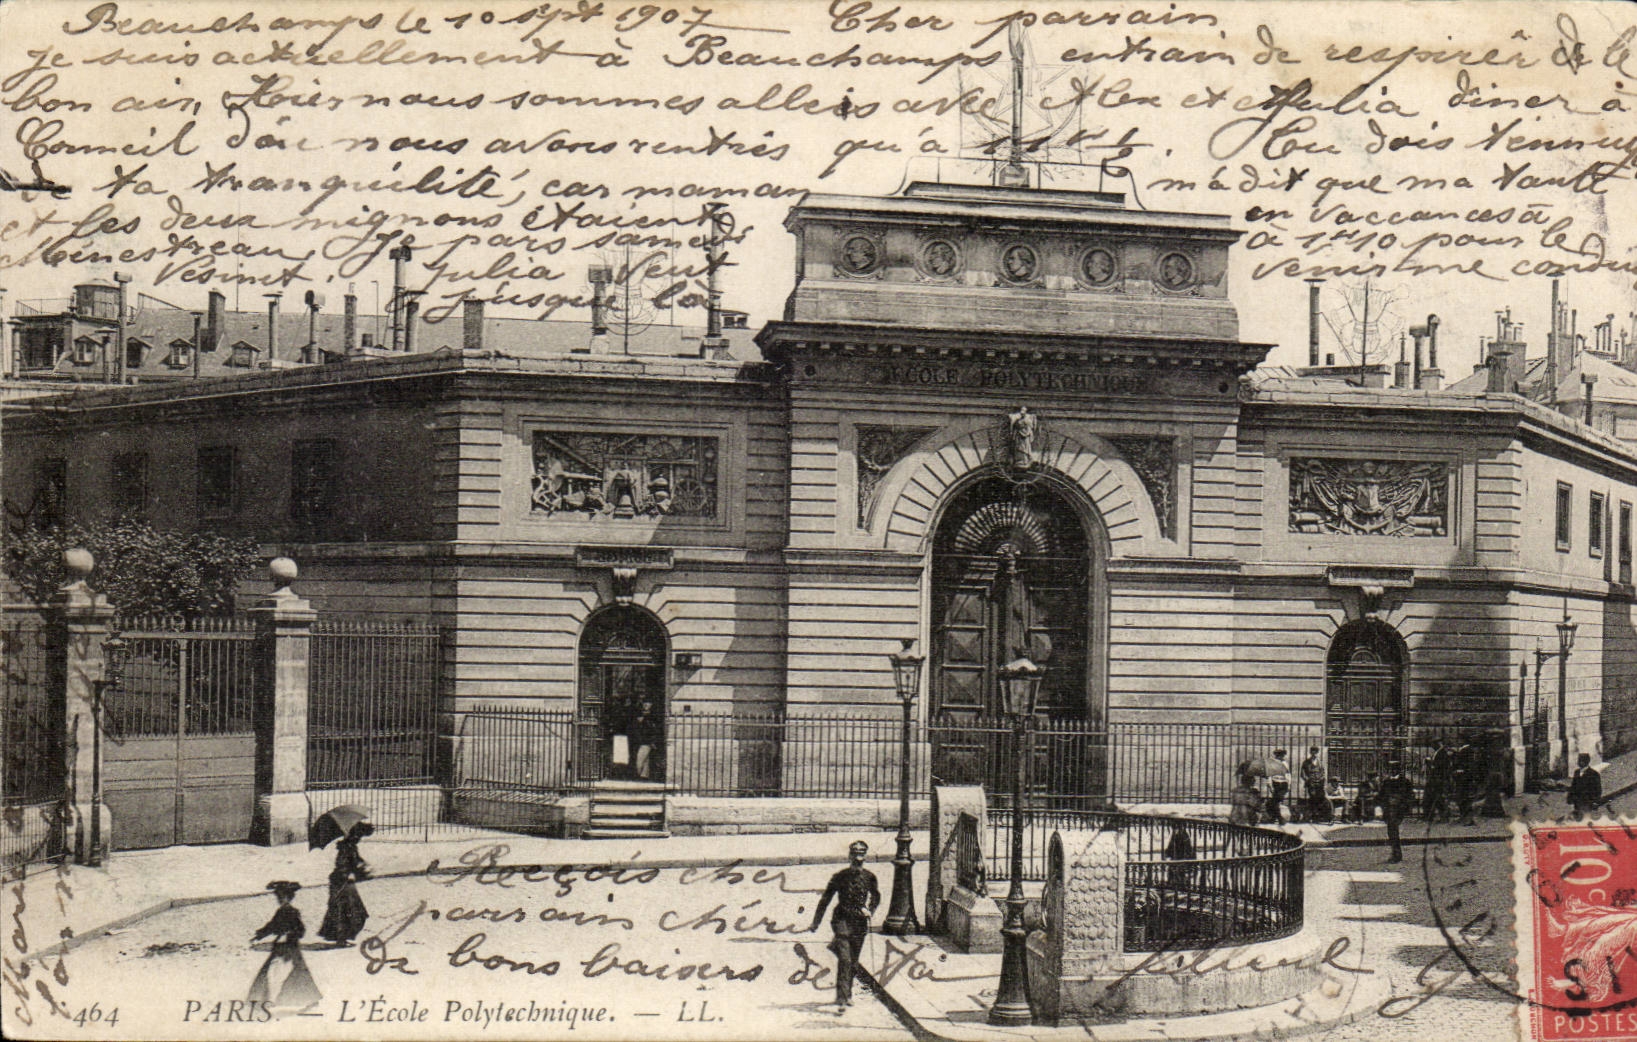 Beauchamps le 10 sept 1907 Cher parrain
je suis actuellement à Beauchamps entrain de respirer de le
bon air, Hier nous sommes alleis avec Alex et Julia diner à
Corneil d'où nous avons rentrés qu'à 11h ½. Tu dois t'ennuy
de ta tranquilité, car maman m'a dit que ma tante
et les deux mignons étaient en vaccances à
Ménestreau, Je pars samedi à 1h10 pour le
Vésinet. Julia veut venir me condui
jusque là
ÉCOLE POLYTECHNIQUE
Reçois cher
parrain chéri
de bons baisers de Ta filleul
464 PARIS. — L'École Polytechnique. — LL.
10c
POSTES